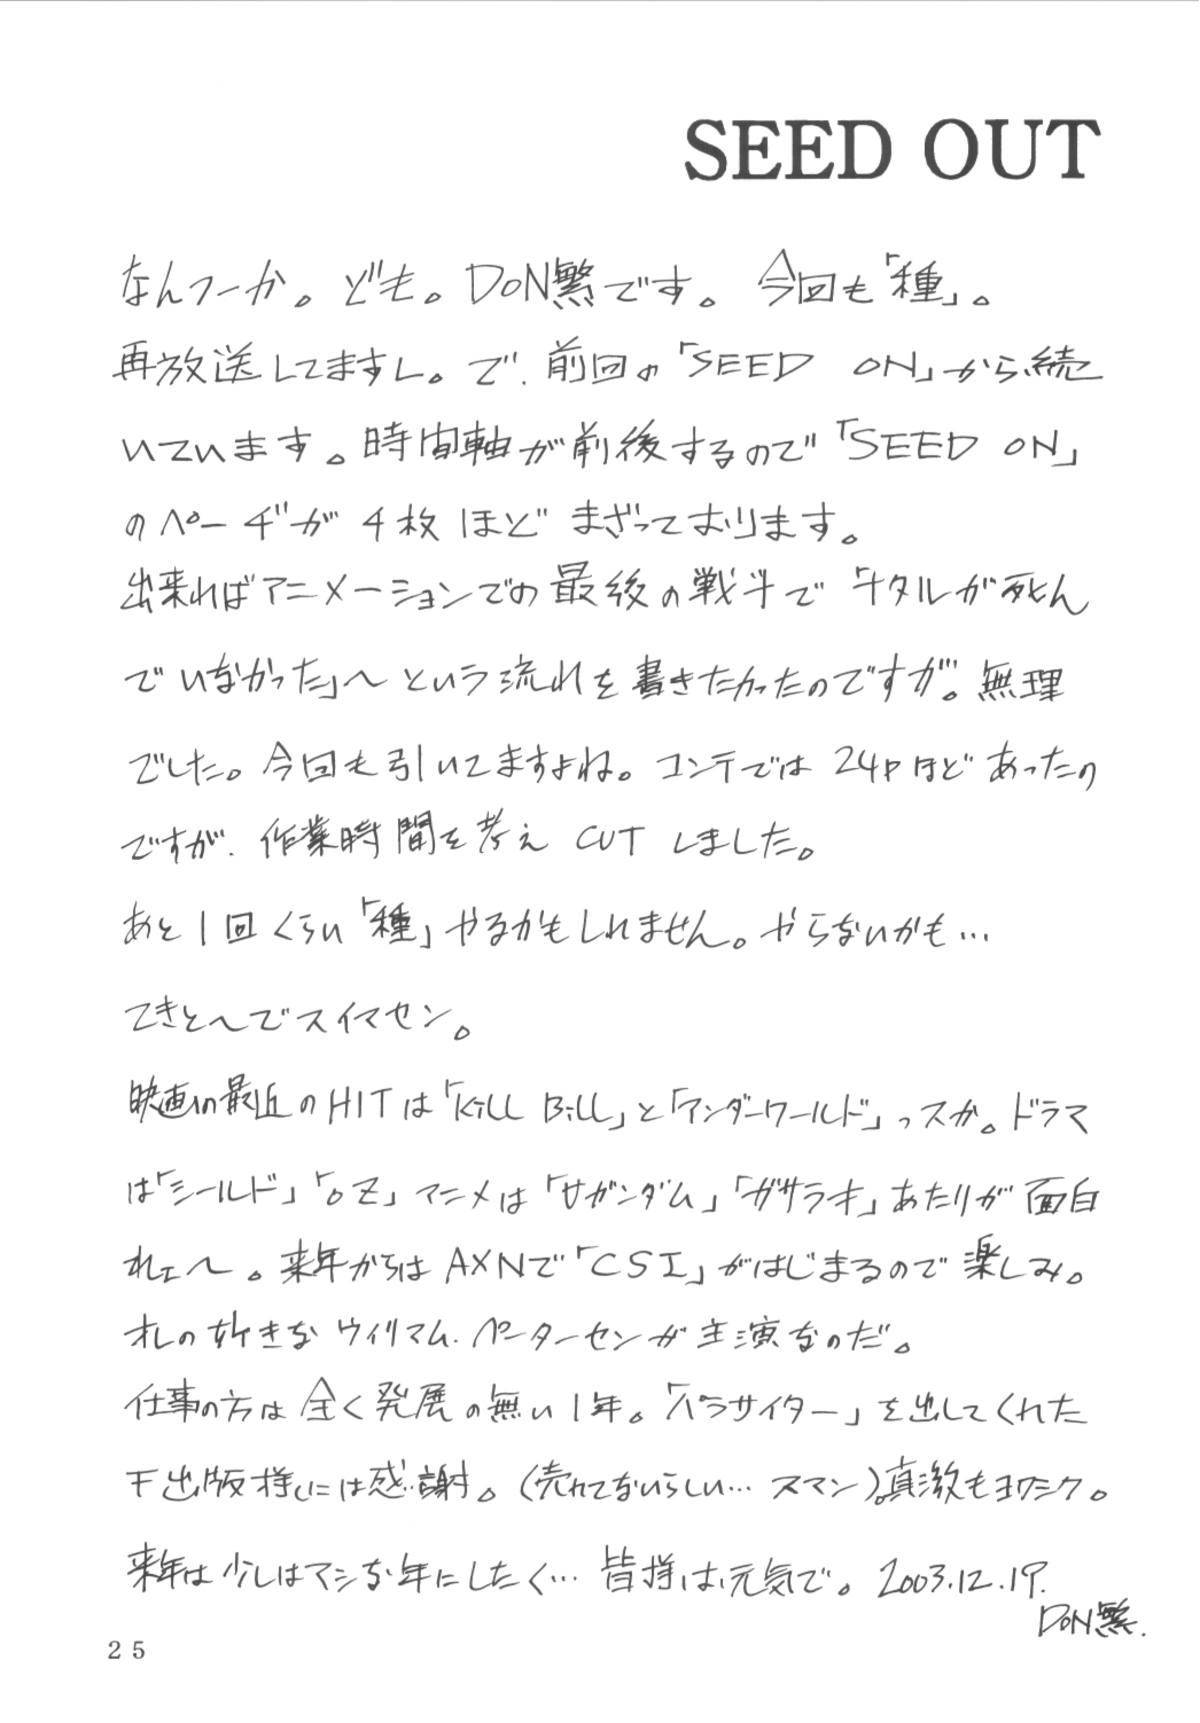 SEED OUT
なんつーか。ども。DON繁です。今回も「種」。
再放送してますし。で、前回の「SEED ON」から続
いています。時間軸が前後するので「SEED ON」
のページが4枚ほどまざっております。
出来ればアニメーションでの最後の戦斗で「キタルが死ん
でいなかった」〜という流れを書きたかったのですが。無理
でした。今回も引いてますよね。コンテでは24Pほどあったの
ですが、作業時間を考えCUTしました。
あと1回くらい「種」やるかもしれません。やらないかも…
てきと〜でスイマセン。
映画の最近のHITは「Kill Bill」と「アンダーワールド」っスか。ドラマ
は「シールド」「OZ」アニメは「ガンダム」「ガサラキ」あたりが面白
れェ〜。来年からはAXNで「CSI」がはじまるので楽しみ。
オレの好きなウイリアム、ペーターセンが主演なのだ。
仕事の方は全く発展の無い1年。「パラサイター」を出してくれた
出版様には感謝。(売れてないらしい…スマン)。真激もヨロシク。
来年は少しはマシな年にしたく…皆様は元気で。2003.12.19.
DON繁.
25